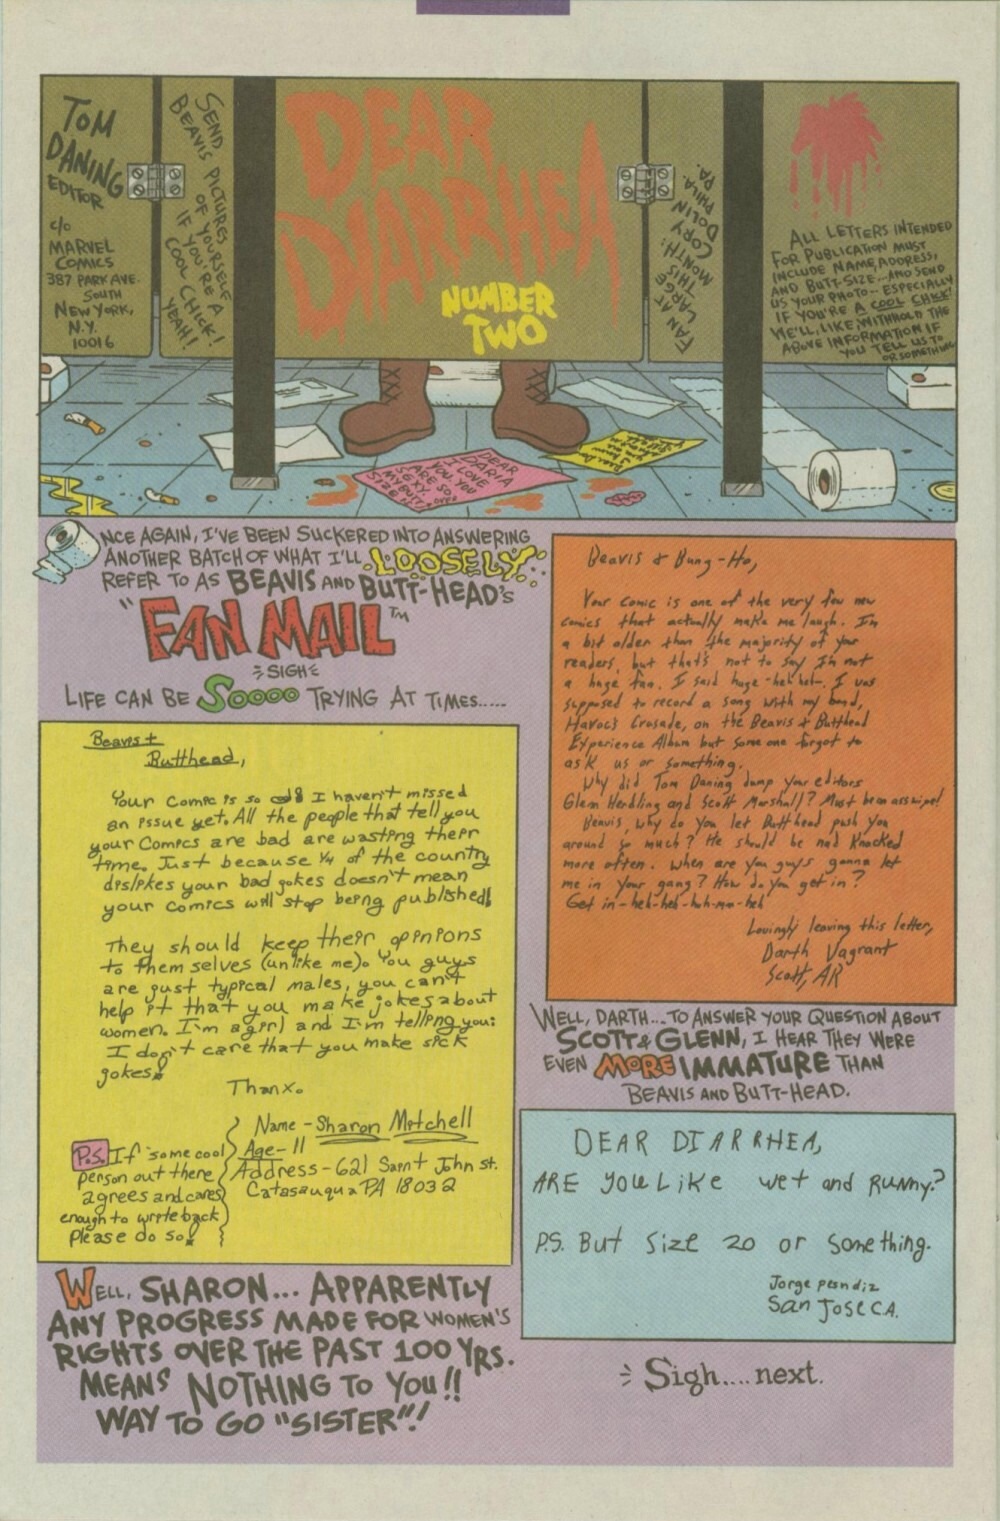 TOM
DANING
EDITOR
c/o
MARVEL
COMICS
387 PARK AVE.
SOUTH
NEW YORK,
N.Y.
10016
SEND
BEAVIS PICTURES
OF YOURSELF
IF YOU'RE A
COOL CHICK!
YEAH!
DEAR
DIARRHEA
NUMBER
TWO
FAN AT
LARGE
THIS
MONTH:
CORY
DOLIN
PHILA.
PA.
ALL LETTERS INTENDED
FOR PUBLICATION MUST
INCLUDE NAME, ADDRESS,
AND BUTT-SIZE...AND SEND
US YOUR PHOTO-- ESPECIALLY
IF YOU'RE A COOL CHICK!
WE'LL, LIKE, WITHHOLD THE
ABOVE INFORMATION IF
YOU TELL US TO
OR SOMETHING
DEAR
DARIA
I LOVE
YOU. YOU
ARE SO
SEXY.
MY BUTT
SIZE IS
OVER
NCE AGAIN, I'VE BEEN SUCKERED INTO ANSWERING
ANOTHER BATCH OF WHAT I'LL LOOSELY
REFER TO AS BEAVIS AND BUTT-HEAD'S
"FAN MAIL™
SIGH
LIFE CAN BE SOOOO TRYING AT TIMES.....
Beavis +
Butthead,
Your comic is so I haven't missed
an issue yet. All the people that tell you
your comics are bad are wasting their
time. Just because 1/4 of the country
dislikes your bad jokes doesn't mean
your comics will stop being published!
They should keep their opinions
to them selves (unlike me). You guys
are just typical males, you can't
help it that you make jokes about
women. I'm a girl and I'm telling you:
I don't care that you make sick
jokes!
Thanx.
Name - Sharon Mitchell
Age - 11
Address - 621 Saint John st.
Catasauqua PA 18032
P.S. If some cool
person out there
agrees and cares
enough to write back
Please do so!
WELL, SHARON... APPARENTLY
ANY PROGRESS MADE FOR WOMEN'S
RIGHTS OVER THE PAST 100 YRS.
MEANS NOTHING TO YOU!!
WAY TO GO "SISTER"!
Beavis & Bung-Ho,
Your comic is one of the very few new
comics that actually make me laugh. I'm
a bit older than the majority of your
readers, but that's not to say I'm not
a huge fan. I said huge -heh heh-. I was
supposed to record a song with my band,
Havoc's Crusade, on the Beavis & Butthead
Experience Album but some one forgot to
ask us or something.
Why did Tom Daning dump your editors
Glenn Herdling and Scott Marshall? Must be an asswipe!
Beavis, why do you let Butthead push you
around so much? He should be nad Knocked
more often. When are you guys gonna let
me in your gang? How do you get in?
Get in - heh-heh-huh-mm-heh
Lovingly leaving this letter,
Darth Vagrant
Scott, AR
WELL, DARTH....TO ANSWER YOUR QUESTION ABOUT
SCOTT & GLENN, I HEAR THEY WERE
EVEN MORE IMMATURE THAN
BEAVIS AND BUTT-HEAD.
DEAR DIARRHEA,
ARE YOU LIKE wet and RUNNY?
P.S. But size 20 or something.
Jorge
San Jose CA.
Sigh.... next.